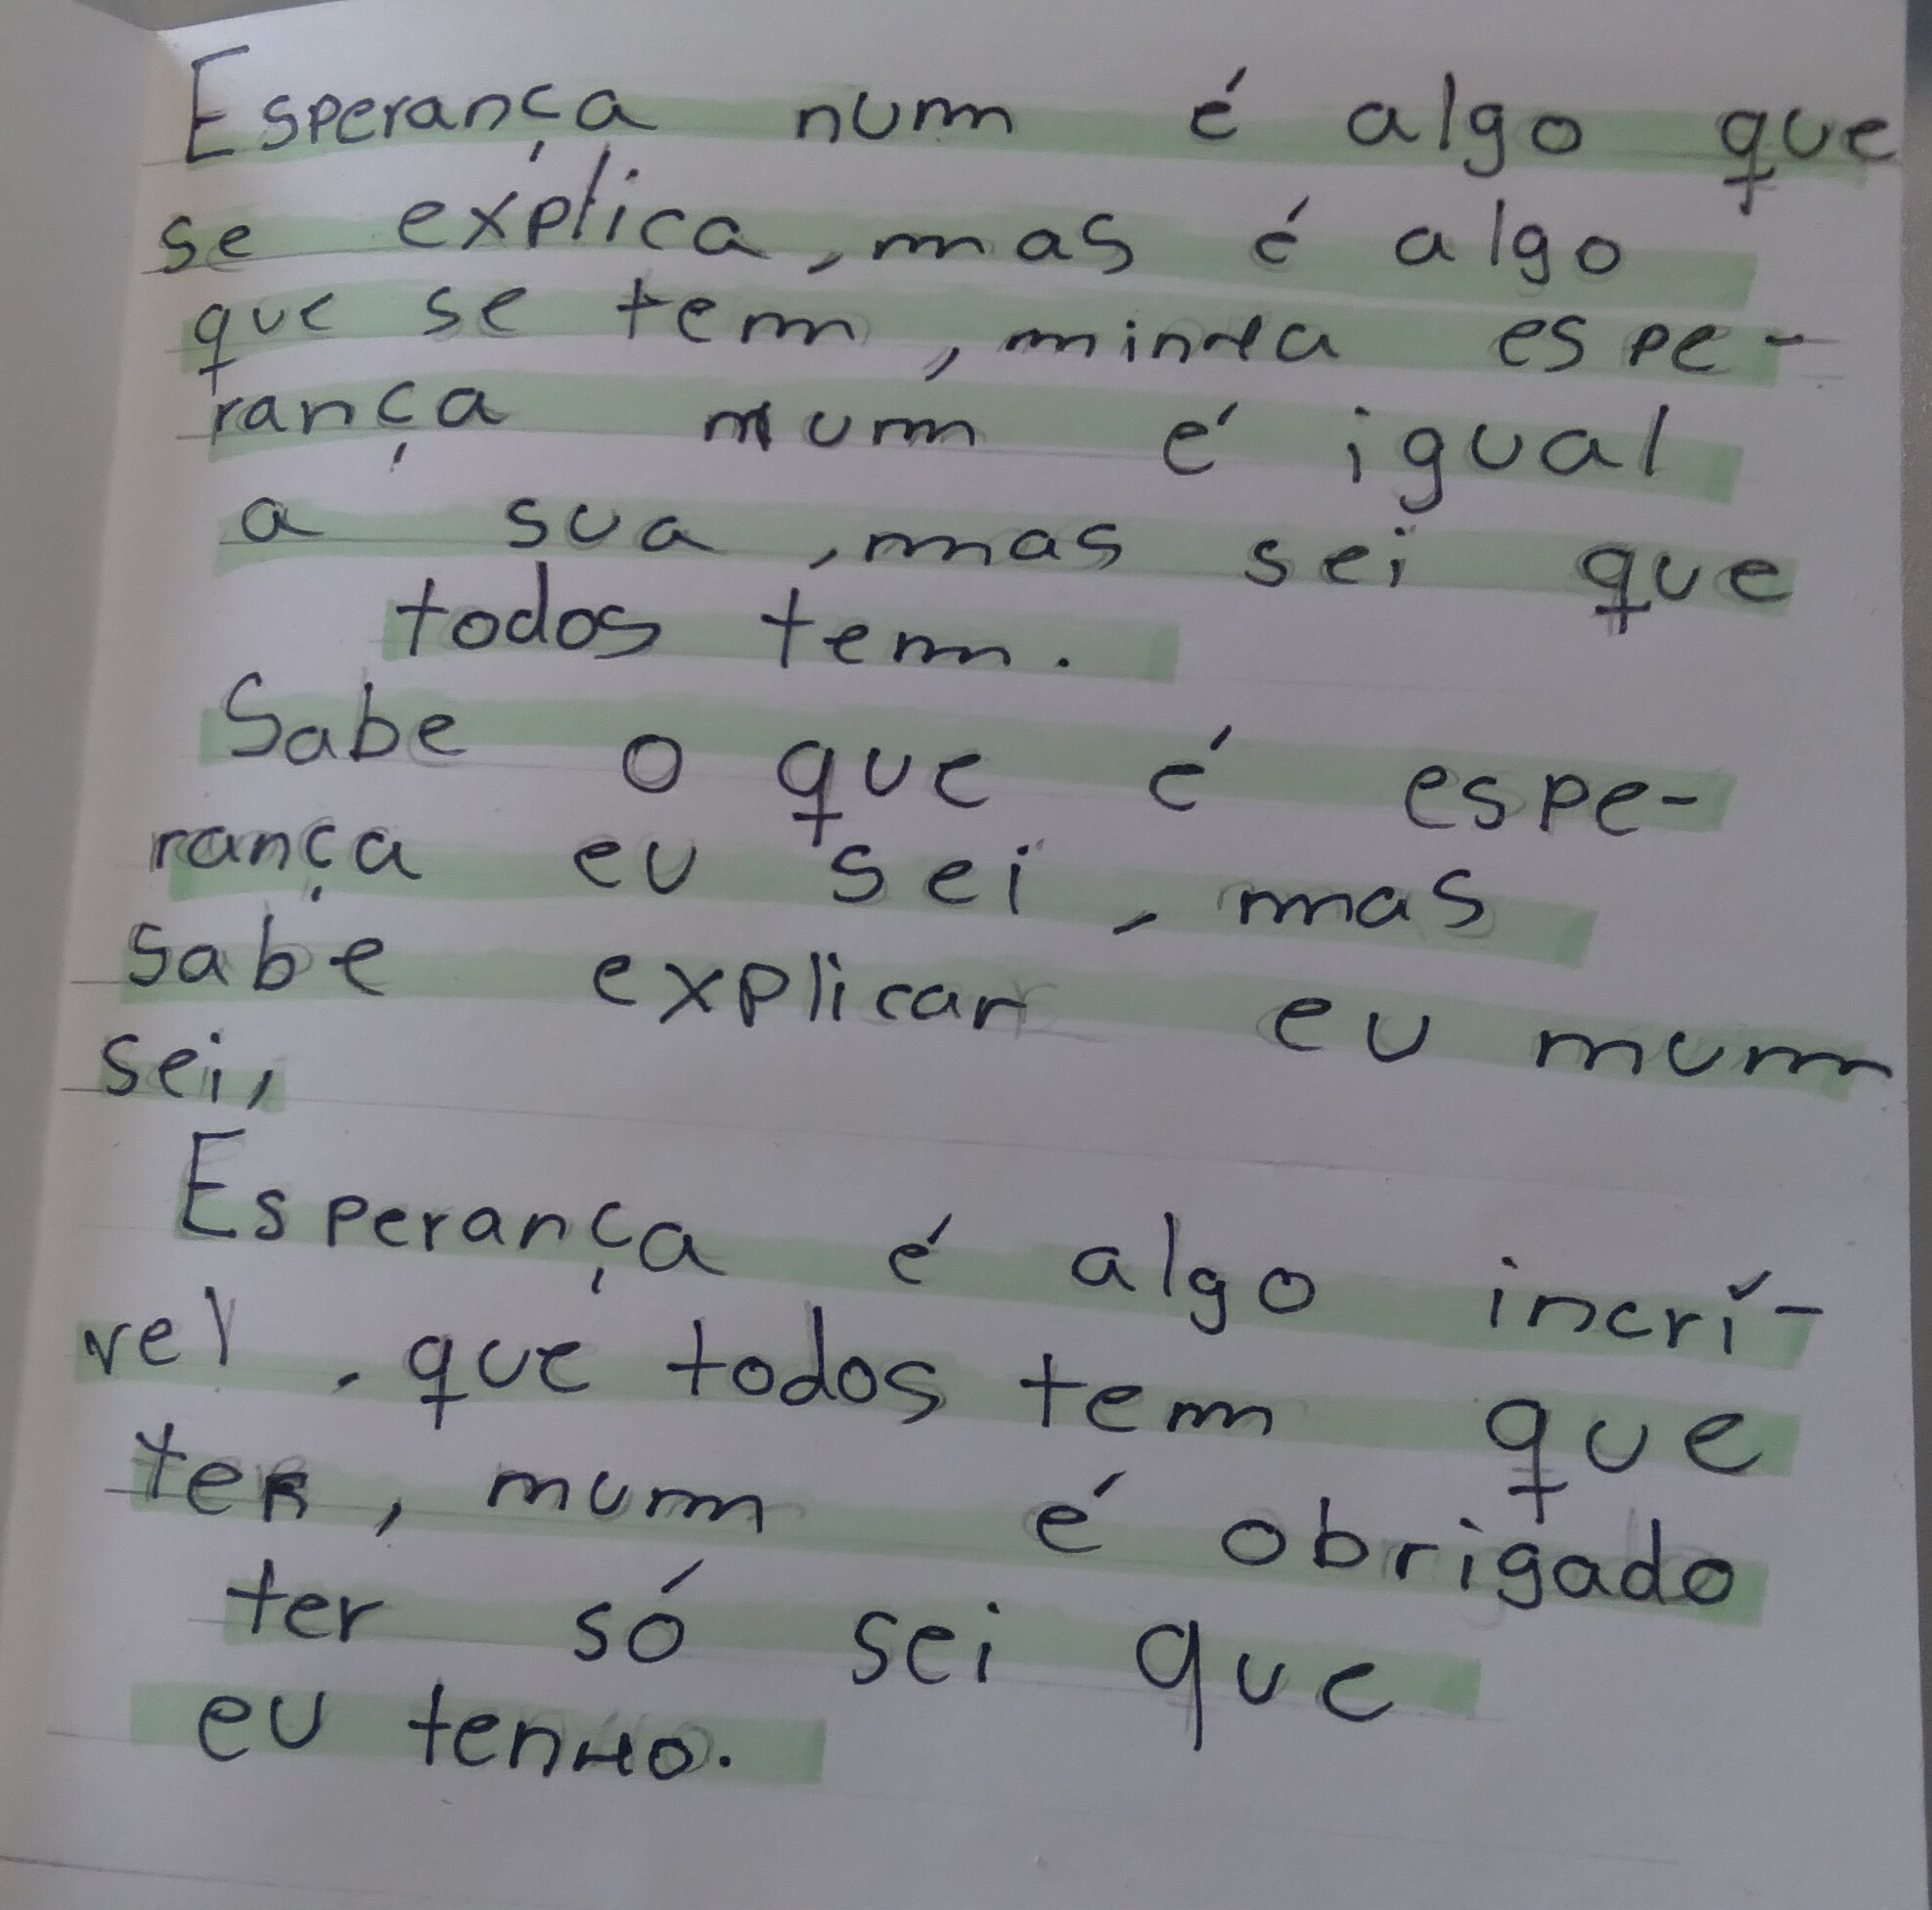 Esperança num é algo que
se explica, mas é algo
que se tem, minha espe-
rança num é igual
a sua, mas sei que
todos tem.
Sabe o que é espe-
rança eu sei, mas
sabe explicar eu num
sei,
Esperança é algo incrí-
vel, que todos tem que
ter, num é obrigado
ter só sei que
eu tenho.